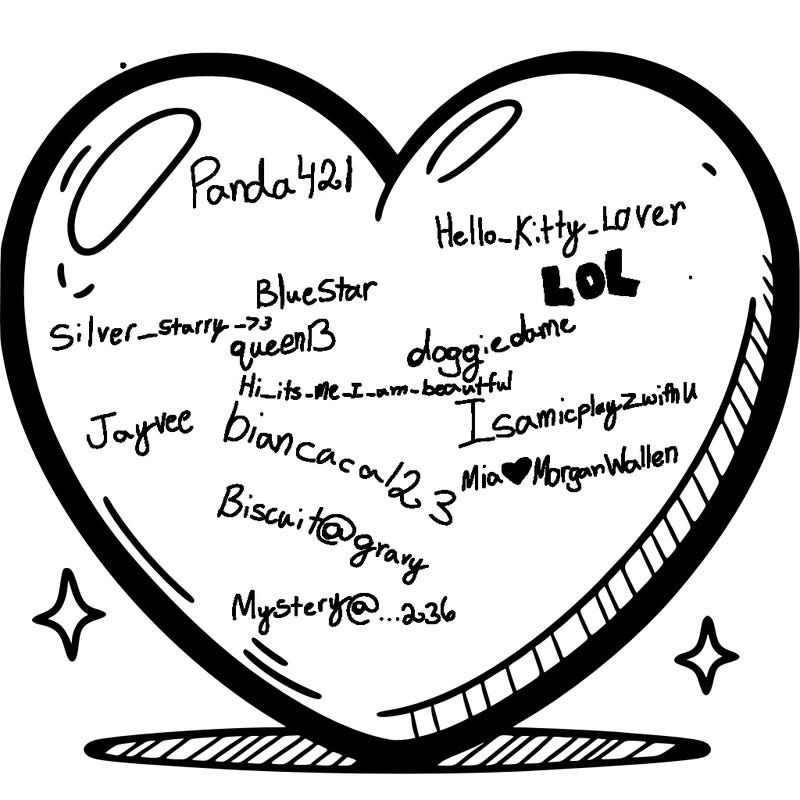 Panda421
Hello_Kitty_Lover
LOL
BlueStar
Silver_Starry->3
queenB
doggiedame
Hi_its_Me_I_am_beautful
Jayvee
biancaca123
IsamicplayZwithU
Mia♥MorganWallen
Biscuit@gravy
Mystery@...236